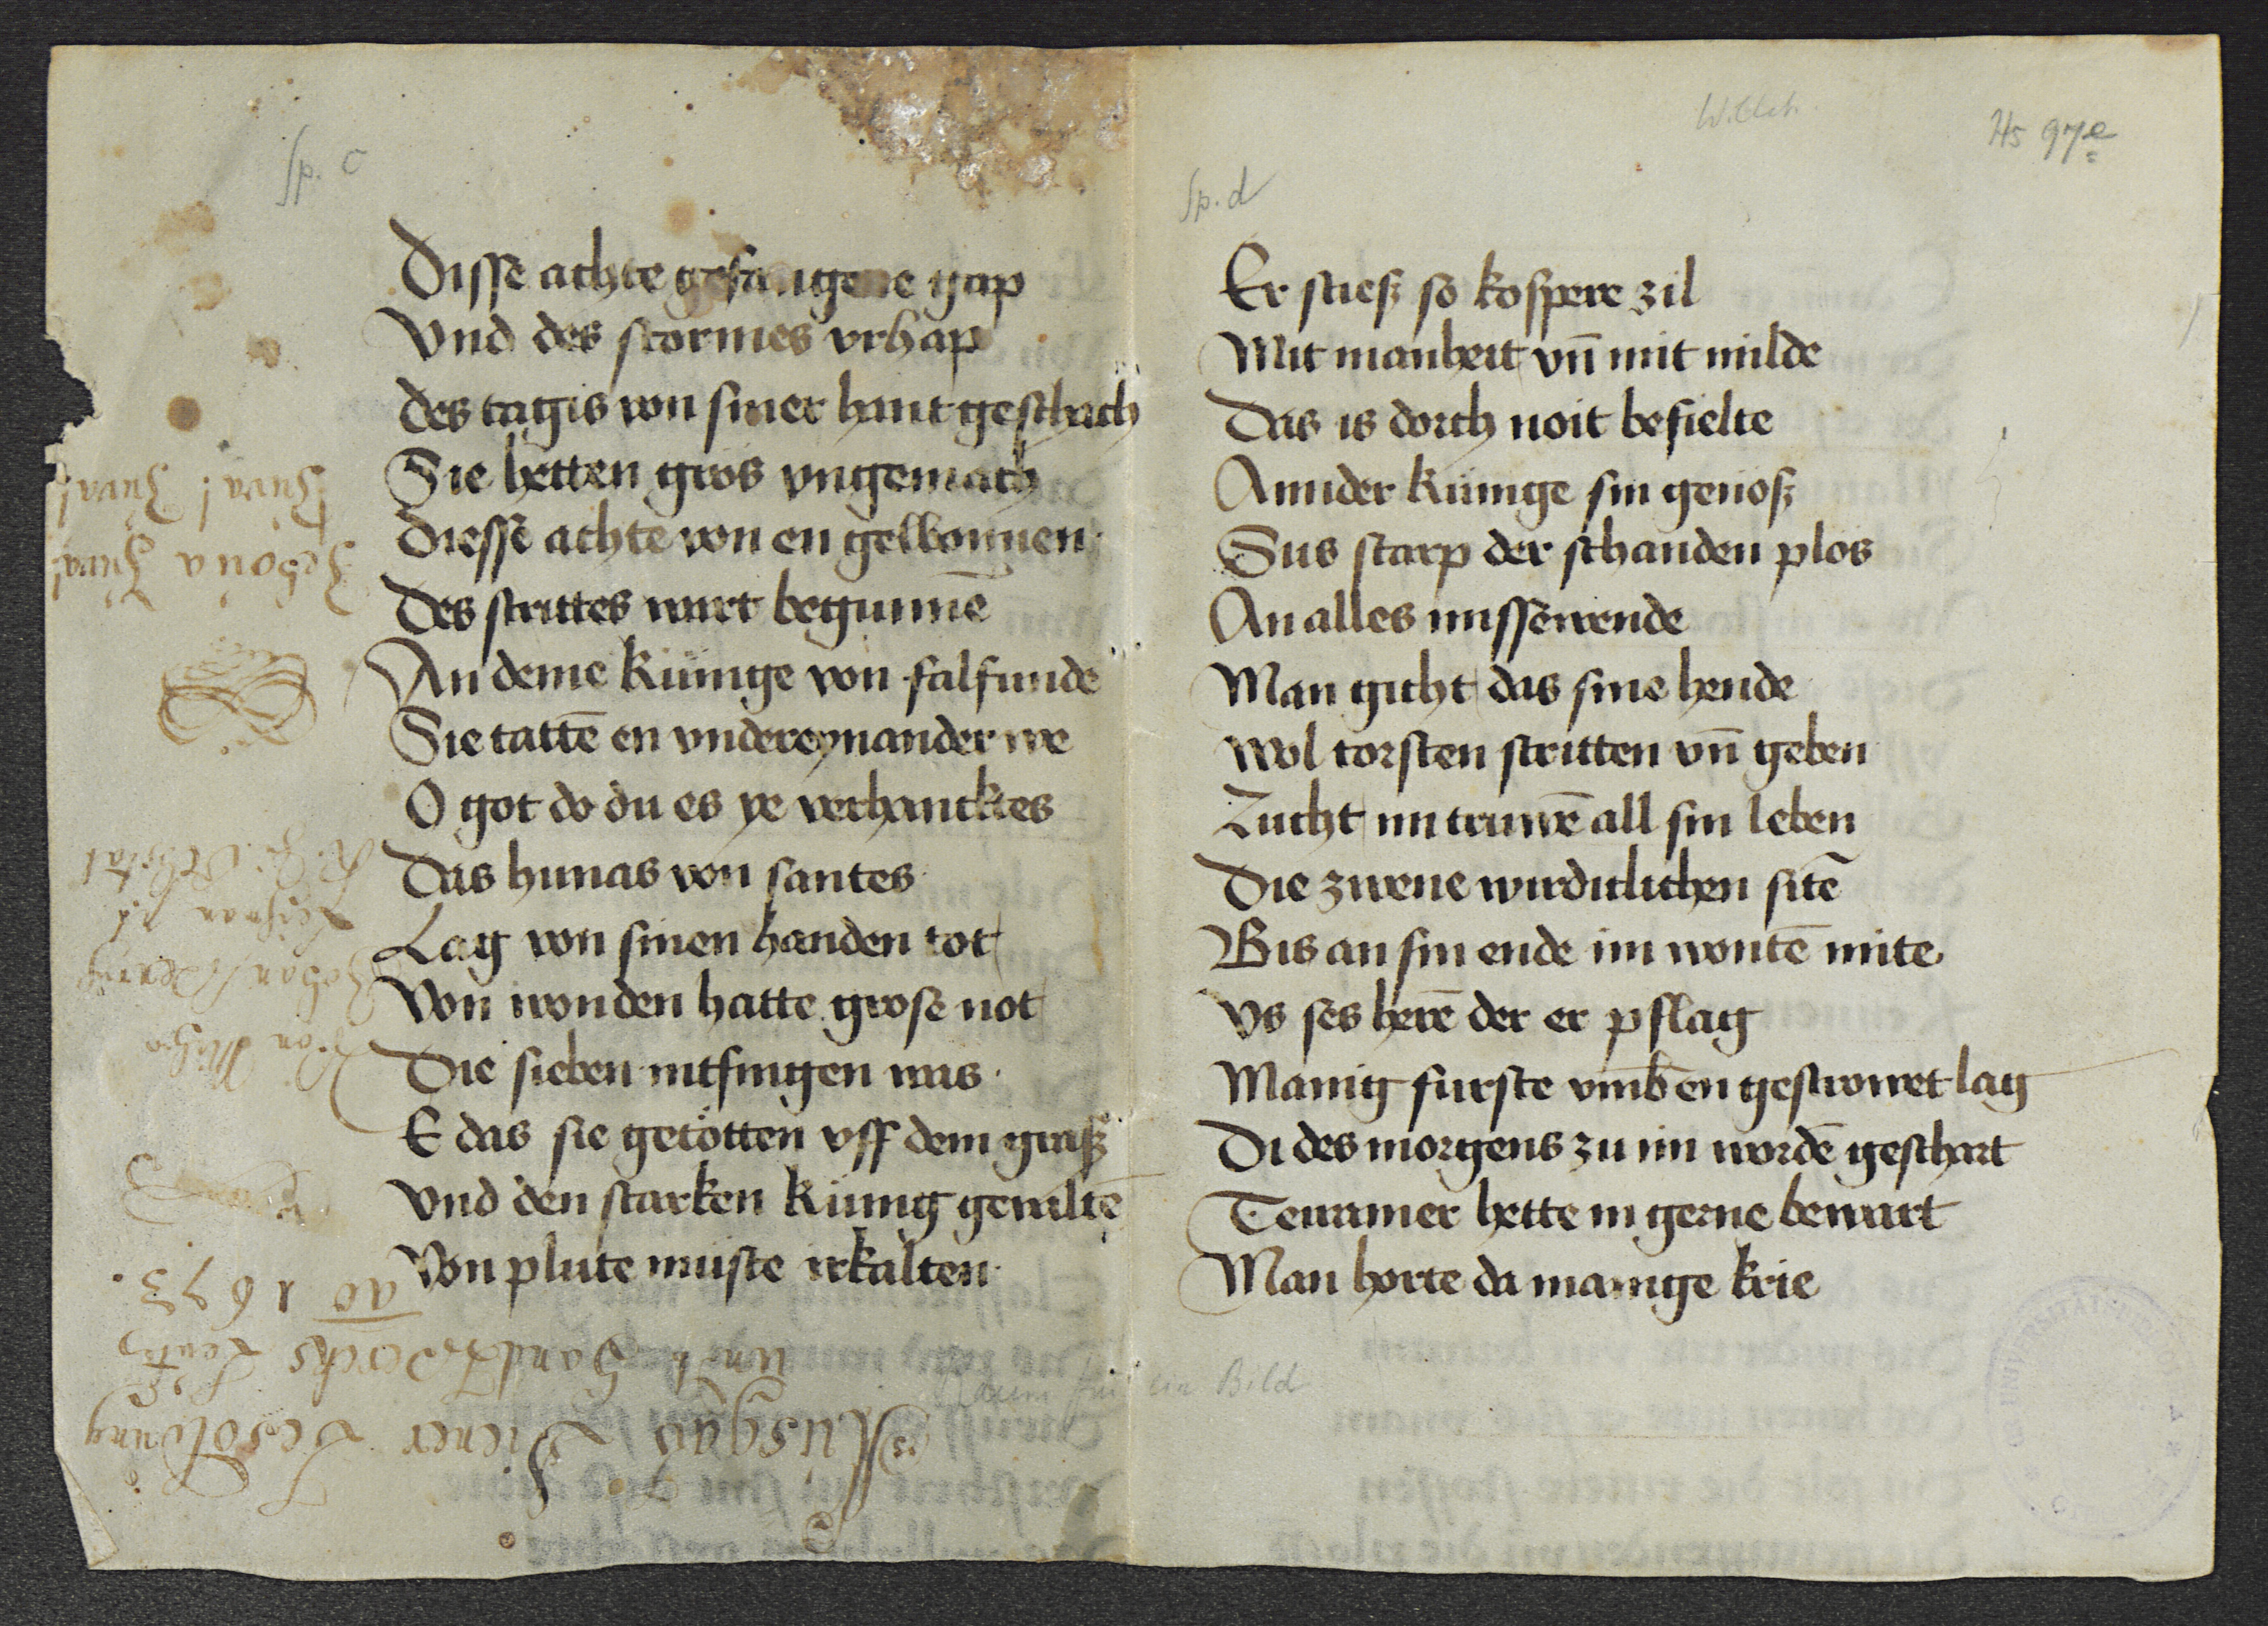 Sp. c
Disse achte gefangene gap
Vnd des stormes vrhap
des tagis von siner hant geschach
Sie hetten gros vngemach
diesse achte von en gewonnen
des strittes wart begunnē
An deme kunige von falfunde
Sie tattē en vndereynander we
O got do du es ye verhancktes
das hunas von santes
Lag von sinen handen tot
Von wonden hatte grose not
Die sieben mtfingen was
E das sie getötten vff dem graß
vnd den starken kunig gewaltē
Von plute muste irkalten
Sp. d
Willeh.
Hs 97e
Er stieß so kospere zil
Mit manheit vn̄ mit milde
das is dorch noit befielte
Ann der kunige sin genoß
Sus starp der schanden plos
An alles missewende
Man gicht das sine hende
wol torsten stritten vn̄ geben
Zucht im truwē all sin leben
die zwene wirdiclichen sitē
Bis an sin ende im wontē mite
vs ses herē der er pflag
Manig furste vmb en gestrowet lag
Di des morgens zu im wordē geschart
Terramer hette in gerne bewart
Man horte da manige krie
Raum für ein Bild
Ausgab Diener Besoldung
und Handtwercks Leuth
ao 1673.
Jehoua Juua!
Juua! Juua!